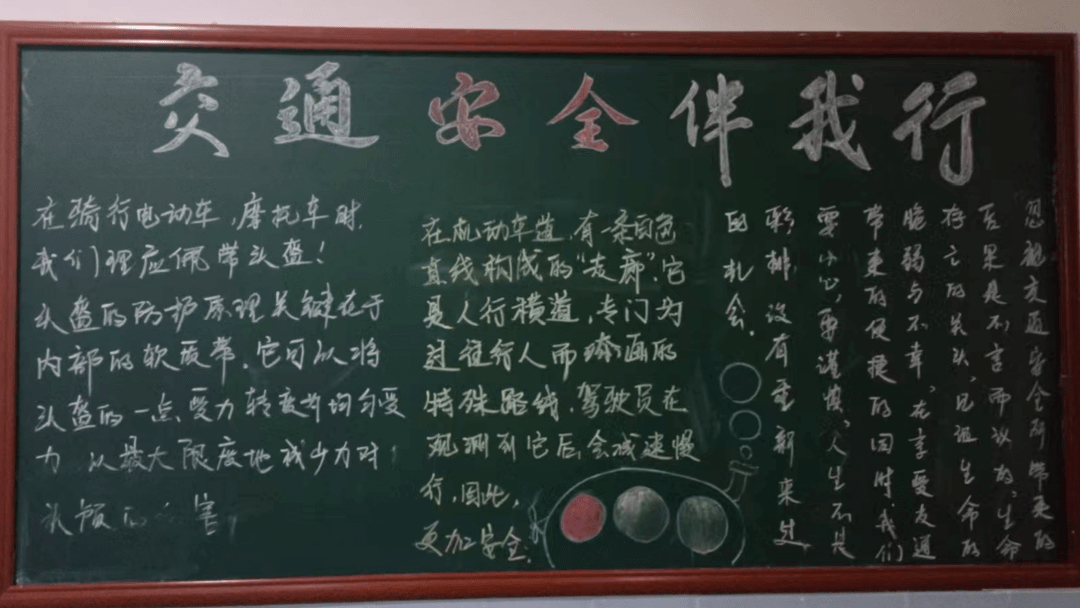 交通安全伴我行
在骑行电动车,摩托车时,
我们理应佩带头盔!
头盔的防护原理关键在于
内部的软质带,它可以将
头盔的一点受力转变为均匀受
力,以最大限度地减少力对
头颅的 害
在机动车道,有一条白色
直线构成的“走廊”,它
是人行横道,专门为
过往行人而 画的
特殊路线,驾驶员在
观测到它后,会减速慢
行,因此,
更加安全.
忽视交通安全所带来的
后果是不言而议的,生命
存亡的关头,见证生命的
脆弱与不幸,在享受交通
带来的便捷的同时我们
要小心,要谨慎,人生不是
彩排,没有重新来过
的机会.